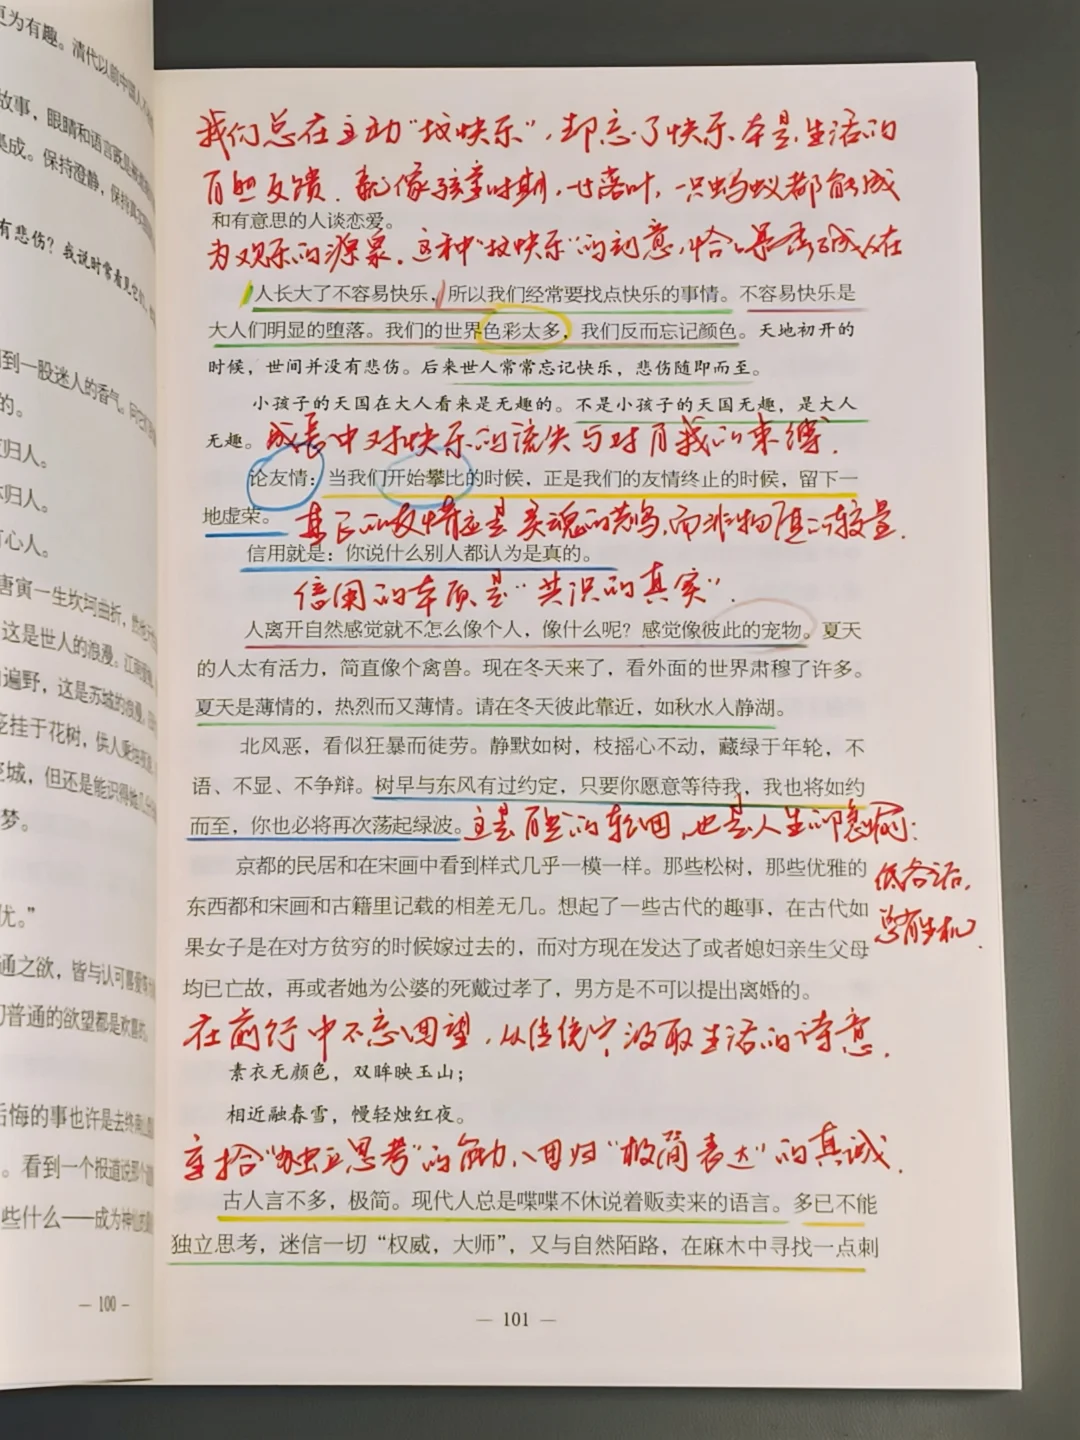 更为有趣。清代以前中国人
故事，眼睛和语言既是
集成。保持澄静，保持
有悲伤？我说时常看见它
闻到一股迷人的香气。问它
的。
归人。
归人。
有心人。
唐寅一生坎坷曲折，
这是世人的浪漫。江南
遍野，这是苏城的浪漫。
笼挂于花树，供人乘
空城，但还是能识得她
梦。
忧。”
通之欲，皆与认可喜爱
们普通的欲望都是欢喜的。
后悔的事也许是去终南
。看到一个报道说那个
些什么——成为神仙
— 100 –
我们总在主动“找快乐”，却忘了快乐本是生活的
自然反馈。就像孩童时期，一片落叶，一只蚂蚁都能成
和有意思的人谈恋爱。
为欢乐的源泉。这种“找快乐”的刻意，恰恰暴露了成人在
人长大了不容易快乐，所以我们经常要找点快乐的事情。不容易快乐是
大人们明显的堕落。我们的世界色彩太多，我们反而忘记颜色。天地初开的
时候，世间并没有悲伤。后来世人常常忘记快乐，悲伤随即而至。
小孩子的天国在大人看来是无趣的。不是小孩子的天国无趣，是大人
无趣。成长中对快乐的流失与对自我的束缚.
论友情：当我们开始攀比的时候，正是我们的友情终止的时候，留下一
地虚荣。真正的友情应是灵魂的共鸣，而非物质的较量.
信用就是：你说什么别人都认为是真的。
信用的本质是“共识的真实”.
人离开自然感觉就不怎么像个人，像什么呢？感觉像彼此的宠物。夏天
的人太有活力，简直像个禽兽。现在冬天来了，看外面的世界肃穆了许多。
夏天是薄情的，热烈而又薄情。请在冬天彼此靠近，如秋水入静湖。
北风恶，看似狂暴而徒劳。静默如树，枝摇心不动，藏绿于年轮，不
语、不显、不争辩。树早与东风有过约定，只要你愿意等待我，我也将如约
而至，你也必将再次荡起绿波。这是自然的轮回，也是人生的隐喻：
低谷之后，
总有生机.
京都的民居和在宋画中看到样式几乎一模一样。那些松树，那些优雅的
东西都和宋画和古籍里记载的相差无几。想起了一些古代的趣事，在古代如
果女子是在对方贫穷的时候嫁过去的，而对方现在发达了或者媳妇亲生父母
均已亡故，再或者她为公婆的死戴过孝了，男方是不可以提出离婚的。
在前行中不忘回望，从传统中汲取生活的诗意.
素衣无颜色，双眸映玉山；
相近融春雪，慢轻烛红夜。
重拾“独立思考”的能力、回归“极简表达”的真诚.
古人言不多，极简。现代人总是喋喋不休说着贩卖来的语言。多已不能
独立思考，迷信一切“权威，大师”，又与自然陌路，在麻木中寻找一点刺
— 101 —